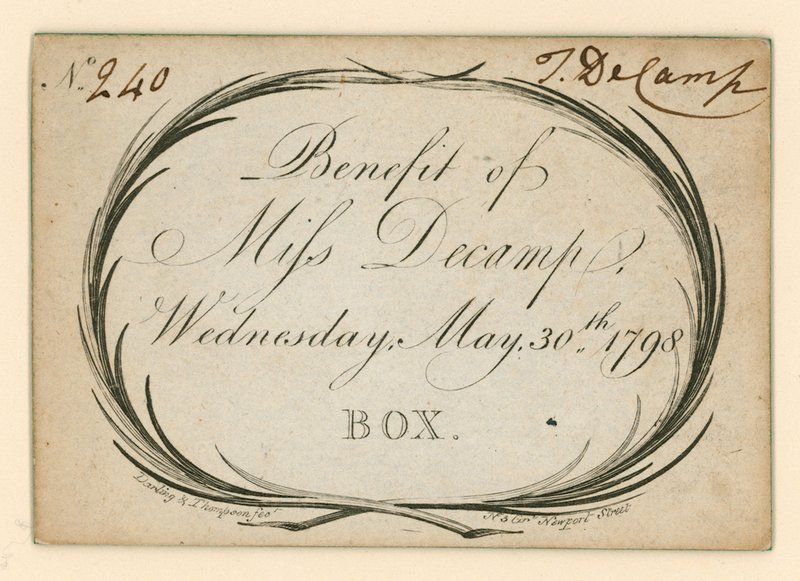 No. 240
T. DeCamp
Benefit of
Miſs Decamp,
Wednesday, May, 30.th 1798
BOX.
Darling & Thompson fect
No 3 Grt Newport Street